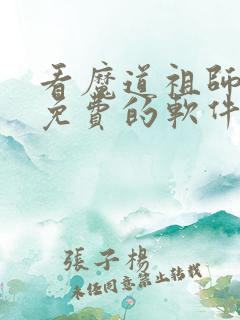 看魔道祖師
免費的軟件
張子楊
未经同意禁止转载